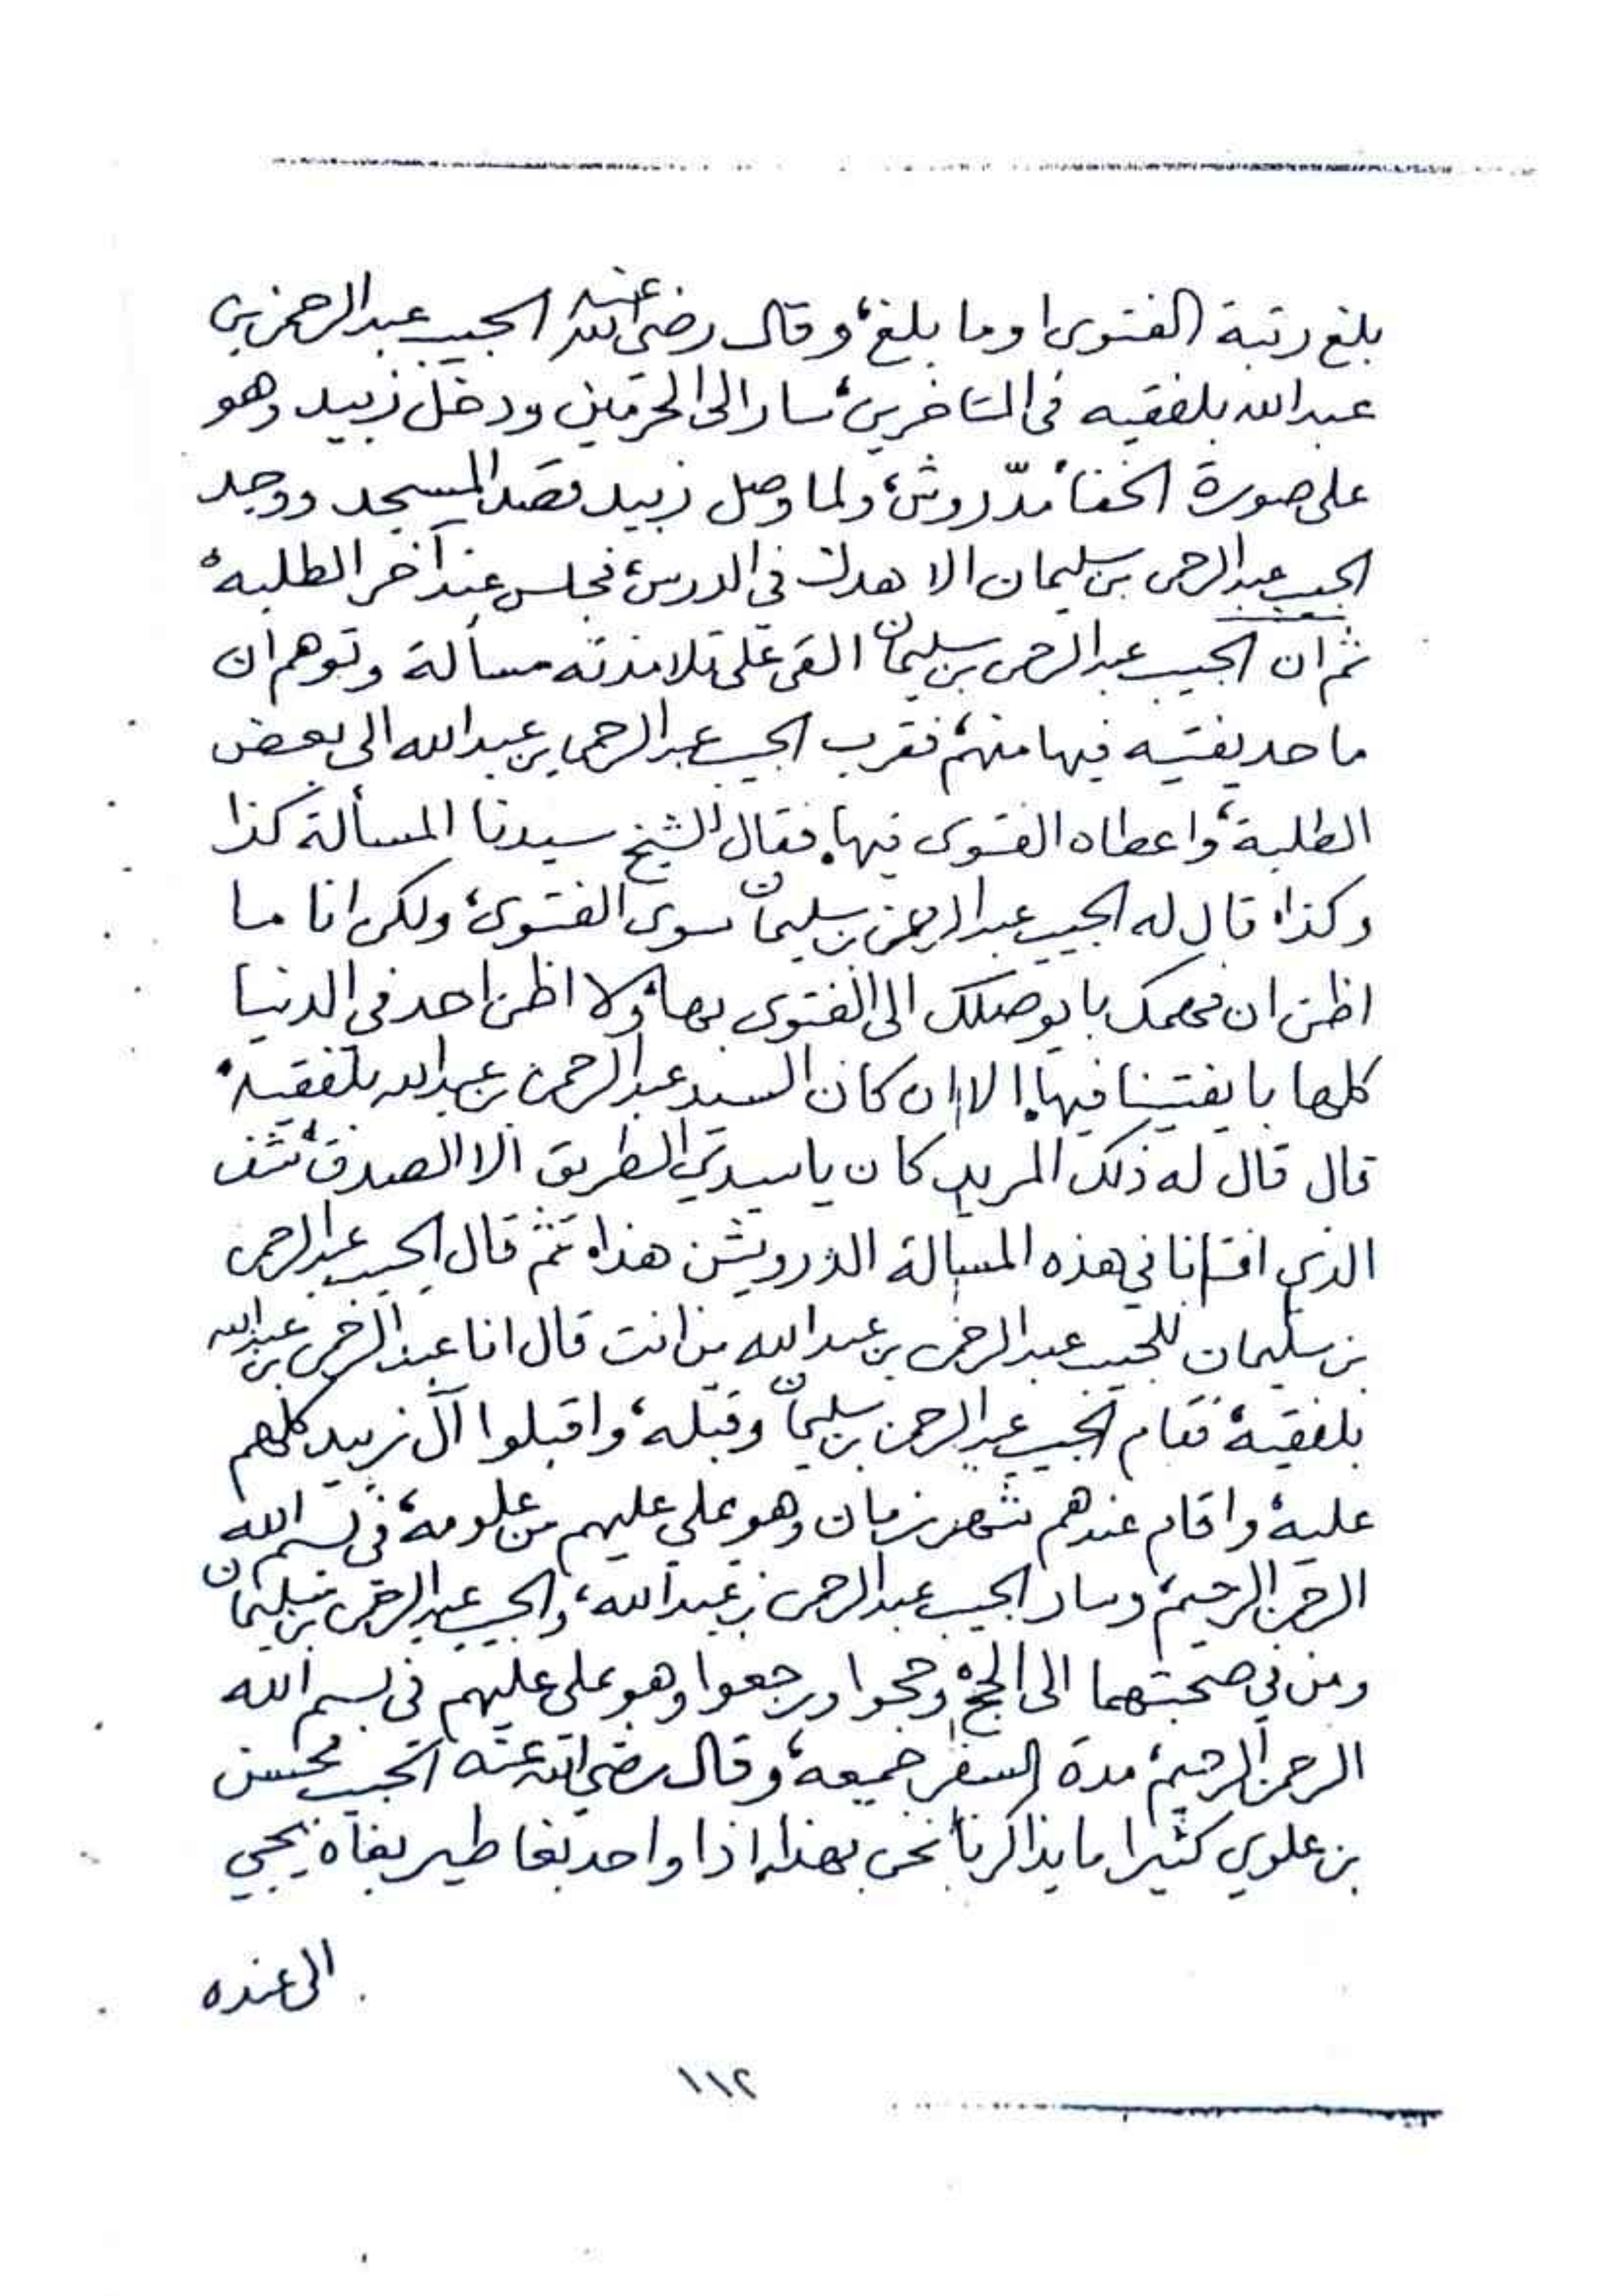 بلغ رتبة الفتوى او ما بلغ، وقال رضي الله عنه الحبيب عبد الرحمن بن
عبد الله بلفقيه في المتأخرين، سار الى الحرمين ودخل زبيد وهو
على صورة الخفاء مدّروش، ولما وصل زبيد قصد المسجد ووجد
الحبيب عبد الرحمن بن سليمان الاهدل في الدرس، فجلس عند آخر الطلبه،
ثم ان الحبيب عبد الرحمن بن سليمان القى على تلامذته مسألة وتوهم ان
ما حد يفتيه فيها منهم، فقرب الحبيب عبد الرحمن بن عبد الله الى بعض
الطلبة، واعطاه الفتوى فيها، فقال للشيخ سيدنا المسألة كذا
وكذا، قال له الحبيب عبد الرحمن بن سليمان سوى الفتوى، ولكن انا ما
اظن ان فهمك با يوصلك الى الفتوى بها، ولا اظن احد في الدنيا
كلها با يفتينا فيها، الا ان كان السيد عبد الرحمن بن عبد الله بلفقيه،
قال قال له ذلك المريد كان يا سيدي الطريق الا الصدق، شف
الذي افتانا في هذه المسالة الدرويش هذا، ثم قال الحبيب عبد الرحمن
بن سليمان للحبيب عبد الرحمن بن عبد الله من انت قال انا عبد الرحمن بن عبد الله
بلفقيه، فقام الحبيب عبد الرحمن بن سليمان وقبّله، واقبلوا آل زبيد كلهم
عليه، واقام عندهم شهر زمان وهو يملي عليهم من علومه، في بسم الله
الرحمن الرحيم، وسار الحبيب عبد الرحمن بن عبد الله، والحبيب عبد الرحمن بن سليمان
ومن في صحبتهما الى الحج، وحجوا ورجعوا وهو يملي عليهم في بسم الله
الرحمن الرحيم، مدة السفر جميعه، وقال رضي الله عنه الحبيب محسن
بن علوي كثيرا ما يذاكرنا نحن بهذا، اذا واحد بغا طير بغاه يجي
الى عنده
١١٢